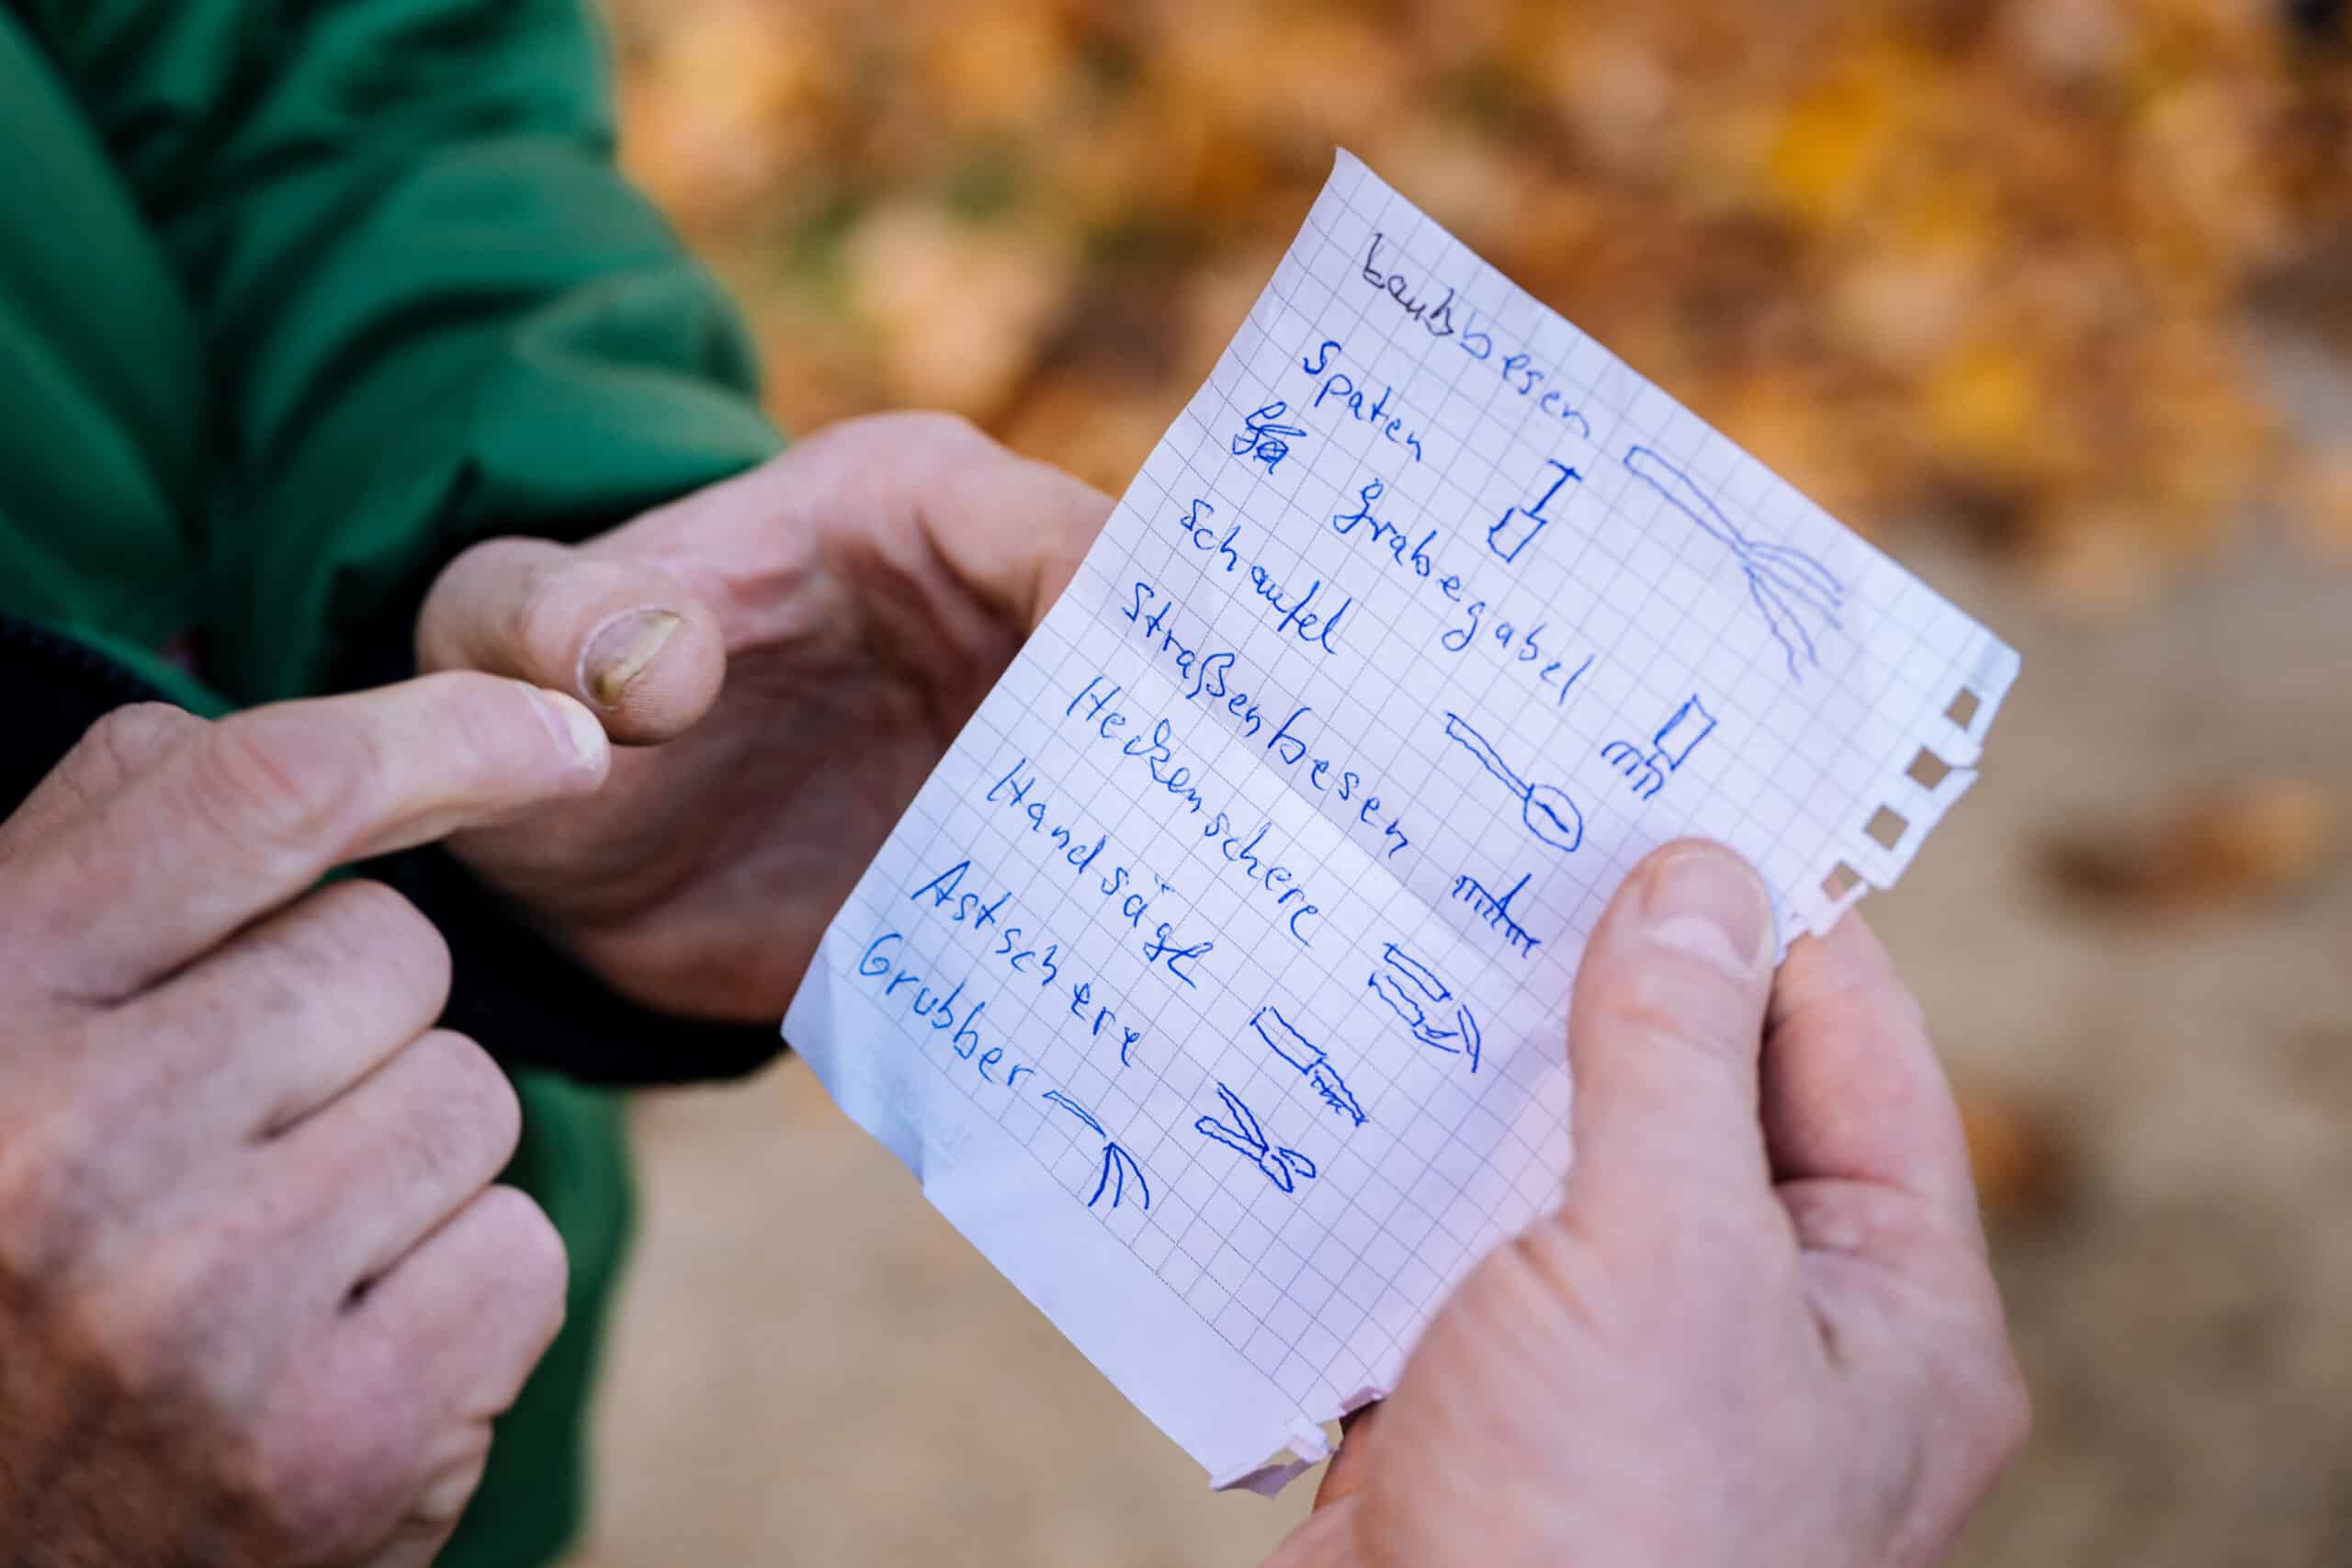 Laubbesen
Spaten
Grabegabel
Schaufel
Straßenbesen
Heckenschere
Handsäge
Astschere
Grubber